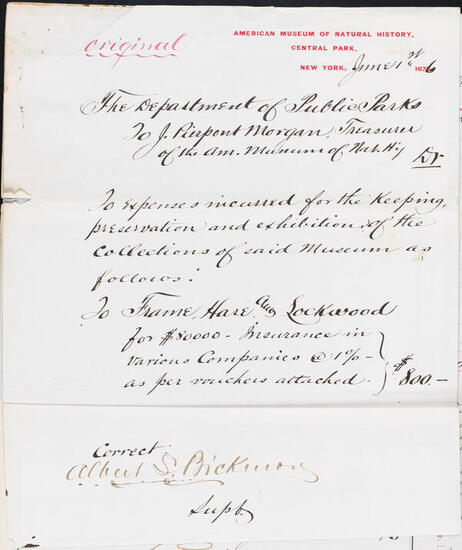 original
AMERICAN MUSEUM OF NATURAL HISTORY,
CENTRAL PARK,
NEW YORK, June 1st 1876
The Department of Public Parks
To J. Pierpont Morgan, Treasurer
of the Am. Museum of Nat. Hi'y Dr
To expenses incurred for the keeping,
preservation and exhibition of the
collections of said Museum as
follows:
To Frame, Hare and Lockwood
for $80000 - Insurance in
Various Companies @ 1% -
as per vouchers attached. $800.-
Correct
Albert S. Bickmore
Supt.